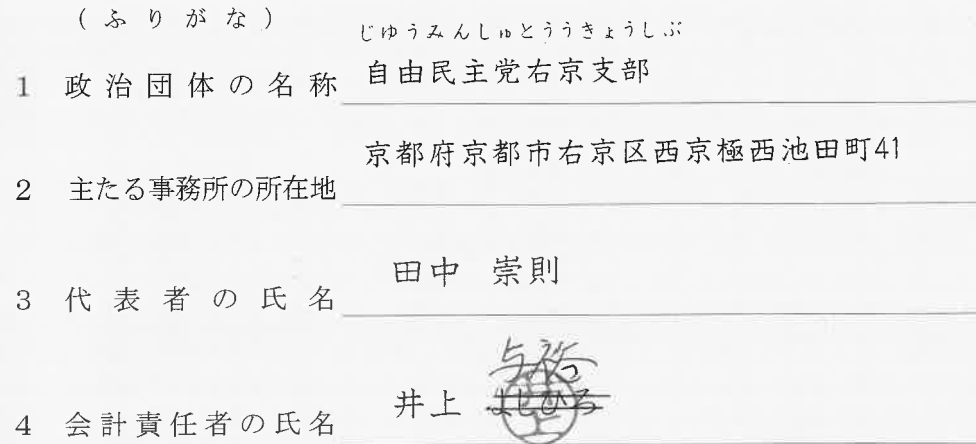 (ふりがな)
じゆうみんしゅとううきょうしぶ
1 政治団体の名称 自由民主党右京支部
京都府京都市右京区西京極西池田町41
2 主たる事務所の所在地
田中 崇則
3 代表者の氏名
与裕
4 会計責任者の氏名 井上 よしひろ